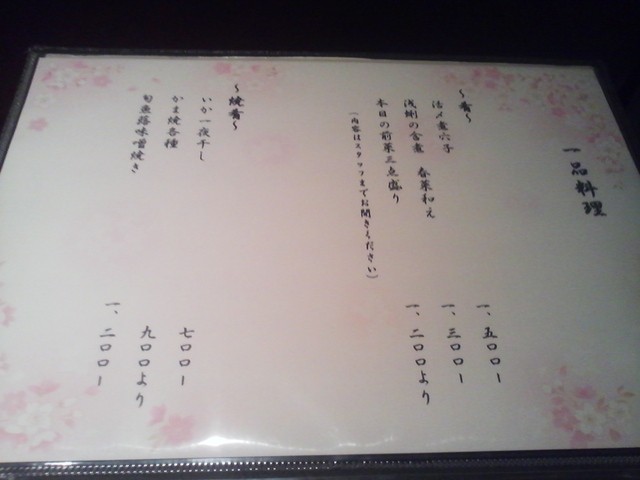 一品料理
～肴～
活〆煮穴子
一、五〇〇ー
浅蜊の含煮 春菜和え
一、三〇〇ー
本日の前菜三点盛り
一、二〇〇より
(内容はスタッフまでお聞きください)
～焼肴～
いか一夜干し
七〇〇ー
かま焼各種
九〇〇より
旬魚蕗味噌焼き
一、二〇〇ー